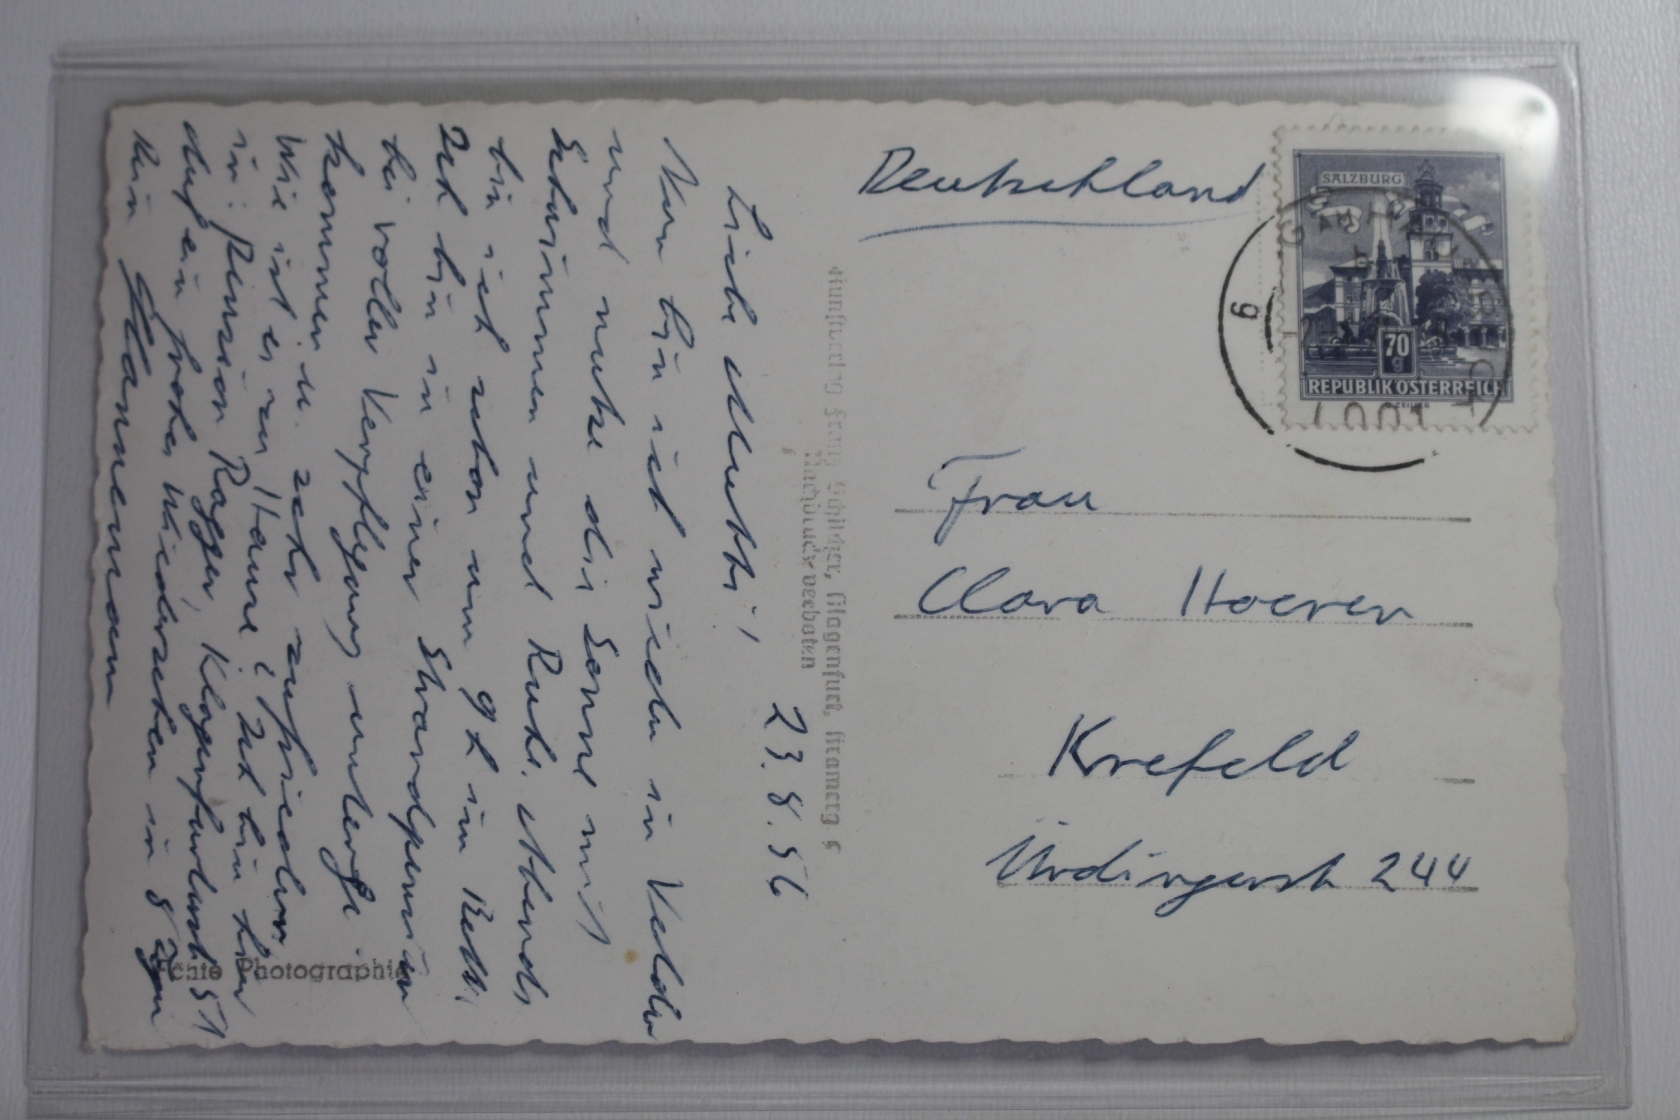 23.8.56
Liebe Mutti!
Nun bin ich wieder in Velden
und nutze die Sonne mit
Schwimmen und Ruhe. Abends
bin ich schon um 9h im Bett.
Ich bin in einer Strandpension
bei voller Verpflegung unterge-
kommen u. sehr zufrieden.
Wie ist es zu Hause? Ich bin hier
in: Pension Ragger, Klagenfurterstr 51
Auf ein frohes Wiedersehen in 8 Tagen
Dein Hannemann
Echte Photographie
Kunstverlag Franz Schilcher, Klagenfurt, Kramerg 6
Nachdruck verboten
Deutschland
SALZBURG
70
g
REPUBLIK ÖSTERREICH
ZEILER
g
Frau
Clara Hoeren
Krefeld
Ürdingerstr 244